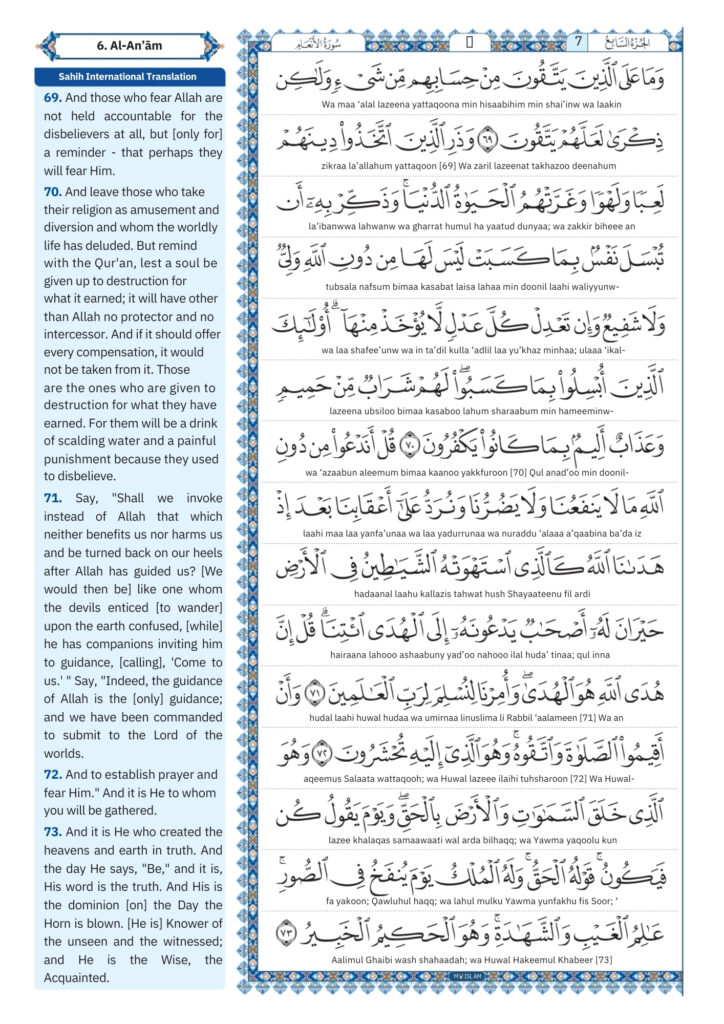 6. Al-An’ām
Sahih International Translation
69. And those who fear Allah are
not held accountable for the
disbelievers at all, but [only for]
a reminder - that perhaps they
will fear Him.
70. And leave those who take
their religion as amusement and
diversion and whom the worldly
life has deluded. But remind
with the Qur'an, lest a soul be
given up to destruction for
what it earned; it will have other
than Allah no protector and no
intercessor. And if it should offer
every compensation, it would
not be taken from it. Those
are the ones who are given to
destruction for what they have
earned. For them will be a drink
of scalding water and a painful
punishment because they used
to disbelieve.
71. Say, "Shall we invoke
instead of Allah that which
neither benefits us nor harms us
and be turned back on our heels
after Allah has guided us? [We
would then be] like one whom
the devils enticed [to wander]
upon the earth confused, [while]
he has companions inviting him
to guidance, [calling], 'Come to
us.' " Say, "Indeed, the guidance
of Allah is the [only] guidance;
and we have been commanded
to submit to the Lord of the
worlds.
72. And to establish prayer and
fear Him." And it is He to whom
you will be gathered.
73. And it is He who created the
heavens and earth in truth. And
the day He says, "Be," and it is,
His word is the truth. And His is
the dominion [on] the Day the
Horn is blown. [He is] Knower of
the unseen and the witnessed;
and He is the Wise, the
Acquainted.
سُورَةُ الأَنْعَام
7 الجُزْءُ السَّابِعُ
وَمَا عَلَى ٱلَّذِينَ يَتَّقُونَ مِنْ حِسَابِهِم مِّن شَىْءٍ وَلَـٰكِن
Wa maa ‘alal lazeena yattaqoona min hisaabihim min shai’inw wa laakin
ذِكْرَىٰ لَعَلَّهُمْ يَتَّقُونَ ٦٩ وَذَرِ ٱلَّذِينَ ٱتَّخَذُوا۟ دِينَهُمْ
zikraa la’allahum yattaqoon [69] Wa zaril lazeenat takhazoo deenahum
لَعِبًا وَلَهْوًا وَغَرَّتْهُمُ ٱلْحَيَوٰةُ ٱلدُّنْيَا ۚ وَذَكِّرْ بِهِۦٓ أَن
la’ibanwwa lahwanw wa gharrat humul ha yaatud dunyaa; wa zakkir biheee an
تُبْسَلَ نَفْسٌۢ بِمَا كَسَبَتْ لَيْسَ لَهَا مِن دُونِ ٱللَّهِ وَلِىٌّ
tubsala nafsum bimaa kasabat laisa lahaa min doonil laahi waliyyunw-
وَلَا شَفِيعٌ وَإِن تَعْدِلْ كُلَّ عَدْلٍ لَّا يُؤْخَذْ مِنْهَآ ۗ أُو۟لَـٰٓئِكَ
wa laa shafee’unw wa in ta’dil kulla ‘adlil laa yu’khaz minhaa; ulaaa ‘ikal-
ٱلَّذِينَ أُبْسِلُوا۟ بِمَا كَسَبُوا۟ ۖ لَهُمْ شَرَابٌ مِّنْ حَمِيمٍ
lazeena ubsiloo bimaa kasaboo lahum sharaabum min hameeminw-
وَعَذَابٌ أَلِيمٌۢ بِمَا كَانُوا۟ يَكْفُرُونَ ٧٠ قُلْ أَنَدْعُوا۟ مِن دُونِ
wa ‘azaabun aleemum bimaa kaanoo yakkfuroon [70] Qul anad’oo min doonil-
ٱللَّهِ مَا لَا يَنفَعُنَا وَلَا يَضُرُّنَا وَنُرَدُّ عَلَىٰٓ أَعْقَابِنَا بَعْدَ إِذْ
laahi maa laa yanfa’unaa wa laa yadurrunaa wa nuraddu ‘alaaa a’qaabina ba’da iz
هَدَىٰنَا ٱللَّهُ كَٱلَّذِى ٱسْتَهْوَتْهُ ٱلشَّيَـٰطِينُ فِى ٱلْأَرْضِ
hadaanal laahu kallazis tahwat hush Shayaateenu fil ardi
حَيْرَانَ لَهُۥٓ أَصْحَـٰبٌ يَدْعُونَهُۥٓ إِلَى ٱلْهُدَى ٱئْتِنَا ۗ قُلْ إِنَّ
hairaana lahooo ashaabuny yad’oo nahooo ilal huda’ tinaa; qul inna
هُدَى ٱللَّهِ هُوَ ٱلْهُدَىٰ ۖ وَأُمِرْنَا لِنُسْلِمَ لِرَبِّ ٱلْعَـٰلَمِينَ ٧١ وَأَنْ
hudal laahi huwal hudaa wa umirnaa linuslima li Rabbil ‘aalameen [71] Wa an
أَقِيمُوا۟ ٱلصَّلَوٰةَ وَٱتَّقُوهُ ۚ وَهُوَ ٱلَّذِىٓ إِلَيْهِ تُحْشَرُونَ ٧٢ وَهُوَ
aqeemus Salaata wattaqooh; wa Huwal lazeee ilaihi tuhsharoon [72] Wa Huwal-
ٱلَّذِى خَلَقَ ٱلسَّمَـٰوَٰتِ وَٱلْأَرْضَ بِٱلْحَقِّ ۖ وَيَوْمَ يَقُولُ كُن
lazee khalaqas samaawaati wal arda bilhaqq; wa Yawma yaqoolu kun
فَيَكُونُ ۚ قَوْلُهُ ٱلْحَقُّ ۚ وَلَهُ ٱلْمُلْكُ يَوْمَ يُنفَخُ فِى ٱلصُّورِ ۚ
fa yakoon; Qawluhul haqq; wa lahul mulku Yawma yunfakhu fis Soor; ‘
عَـٰلِمُ ٱلْغَيْبِ وَٱلشَّهَـٰدَةِ ۚ وَهُوَ ٱلْحَكِيمُ ٱلْخَبِيرُ ٧٣
Aalimul Ghaibi wash shahaadah; wa Huwal Hakeemul Khabeer [73]